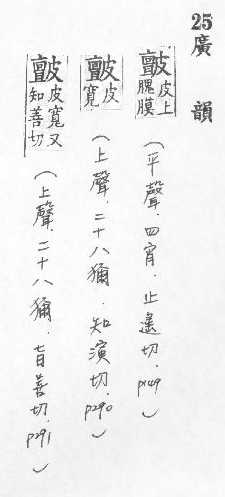 25廣韻
皽皮上膜（平聲.四宵.止遙切.p149）
皽皮寬（上聲.二十八獮.知演切.p290）
皽皮寬又知善切（上聲.二十八獮.旨善切.p291）